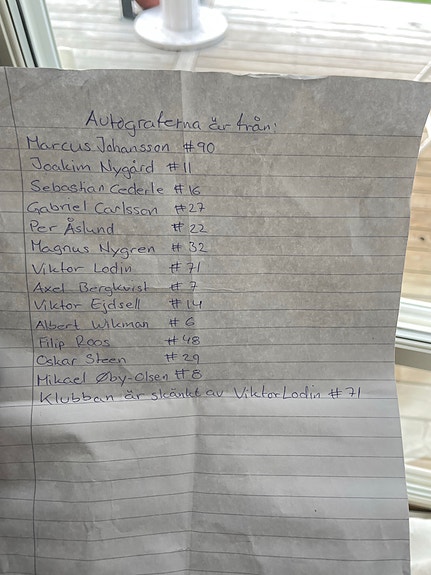 Autograferna är från:
Marcus Johansson #90
Joakim Nygård #11
Sebastian Cederle #16
Gabriel Carlsson #27
Per Åslund #22
Magnus Nygren #32
Viktor Lodin #71
Axel Bergkvist #7
Viktor Ejdsell #14
Albert Wikman #6
Filip Roos #48
Oskar Steen #29
Mikael Øby-Olsen #8
Klubban är skänkt av Viktor Lodin #71